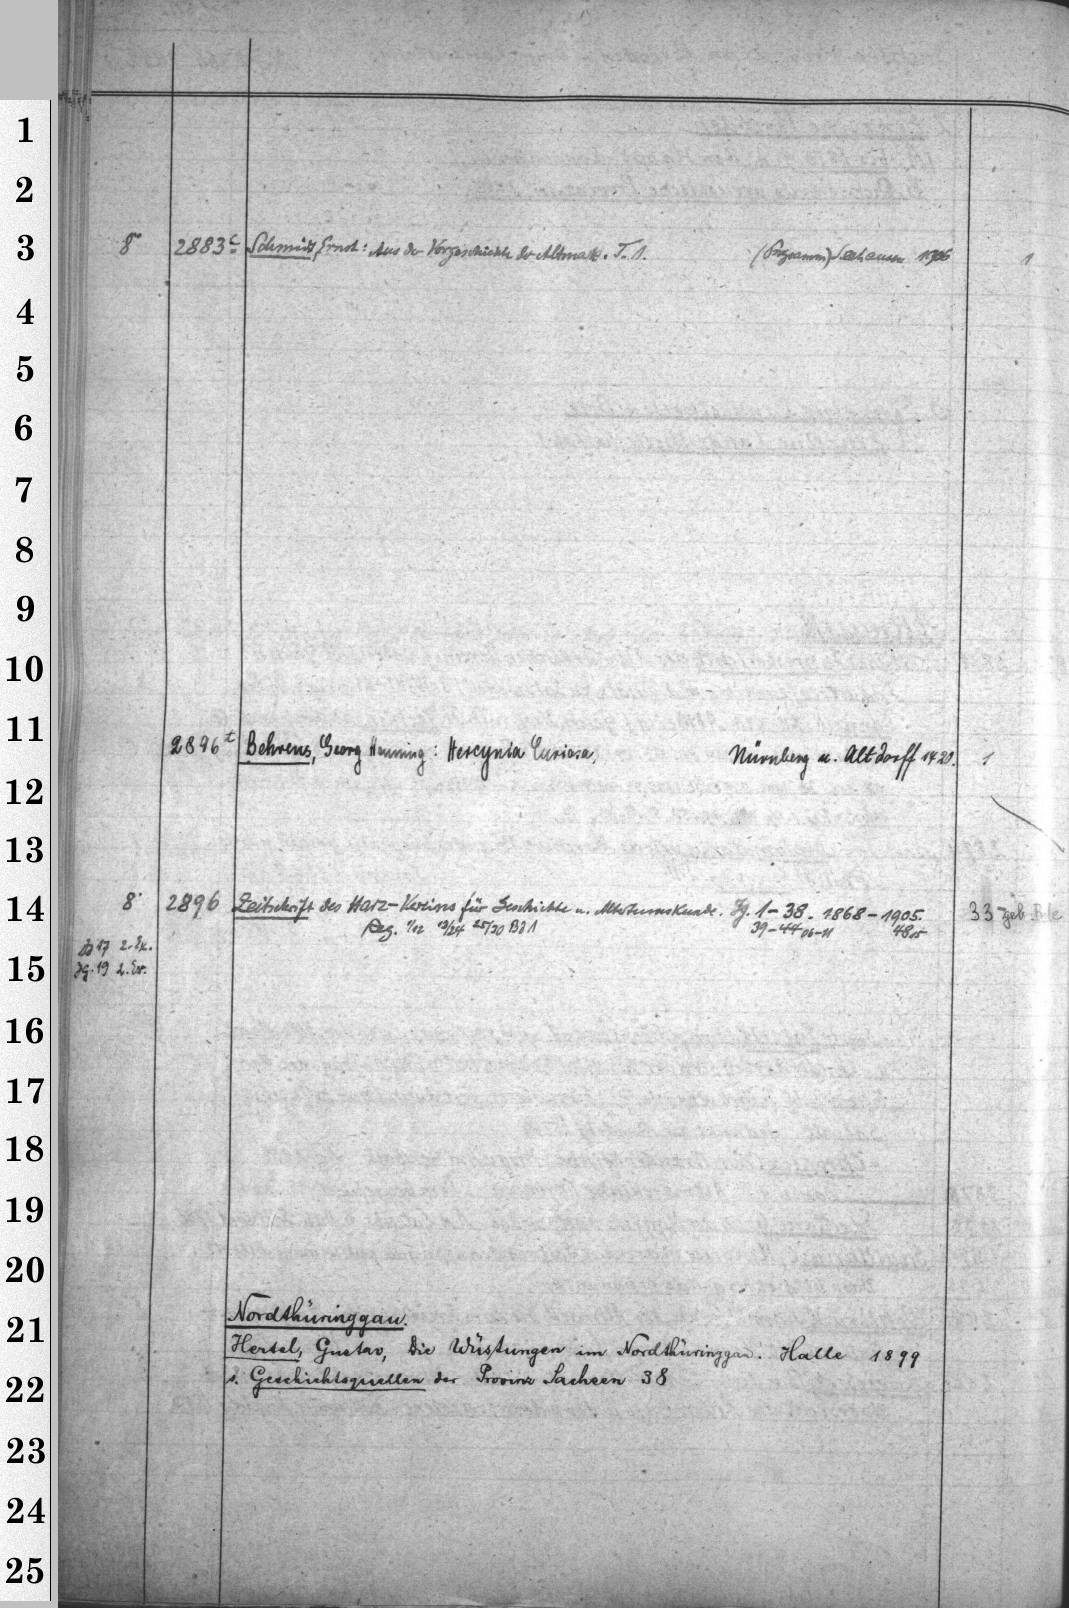 1
2
3
8° 2883c Schmidt, Ernst: Aus der Vorgeschichte der Altmark. T. 1. (Programm) Seehausen 1906 1
4
5
6
7
8
9
10
11
2896t Behrens, Georg Henning: Hercynia Curiosa, Nürnberg u. Altdorff 1720. 1
12
13
14
8° 2896 Zeitschrift des Harz-Vereins für Geschichte u. Altertumskunde. Jg. 1-38. 1868-1905. 33 geb.
Reg. 1/12 13/24 25/30 Bd 1 39-44 06-11 48 15
Jg 17 2. Ex.
Jg. 19 2. Ex.
15
16
17
18
19
20
21
Nordthüringgau.
Hertel, Gustav, Die Wüstungen im Nordthüringgau. Halle 1899
22
s. Geschichtsquellen der Provinz Sachsen 38
23
24
25